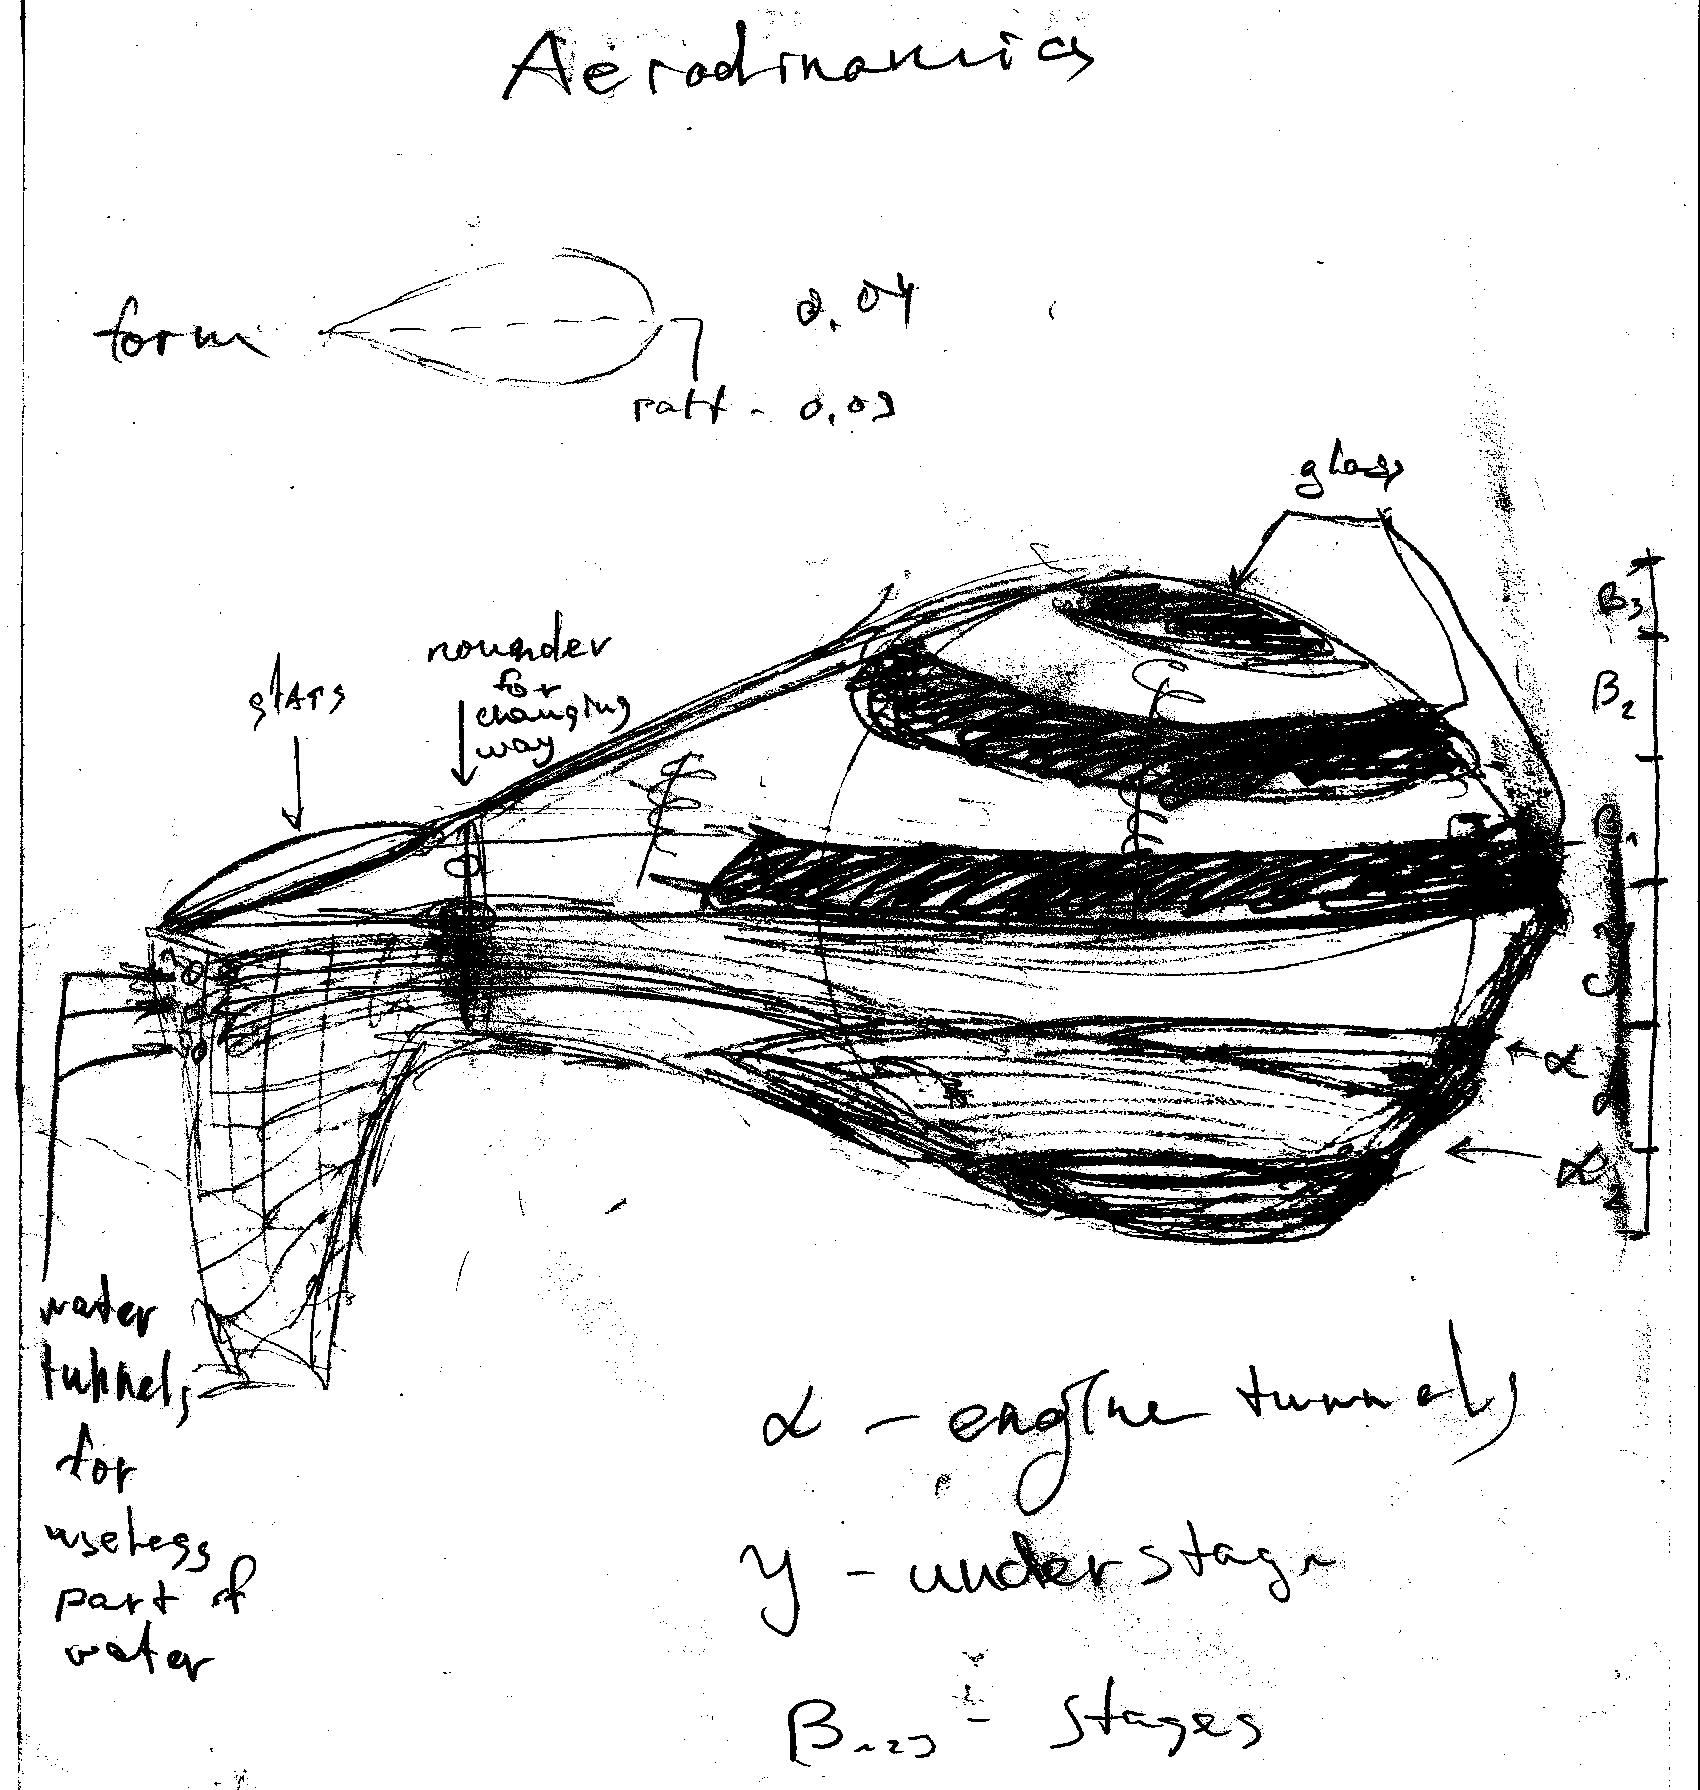 Aerodinamics
form
0.04
0.03
glass
for
changing
way
B3
B2
α
α2
water
tunnels
for
useless
part of
water
α - engine tunnels
y - understage
B123 - stages